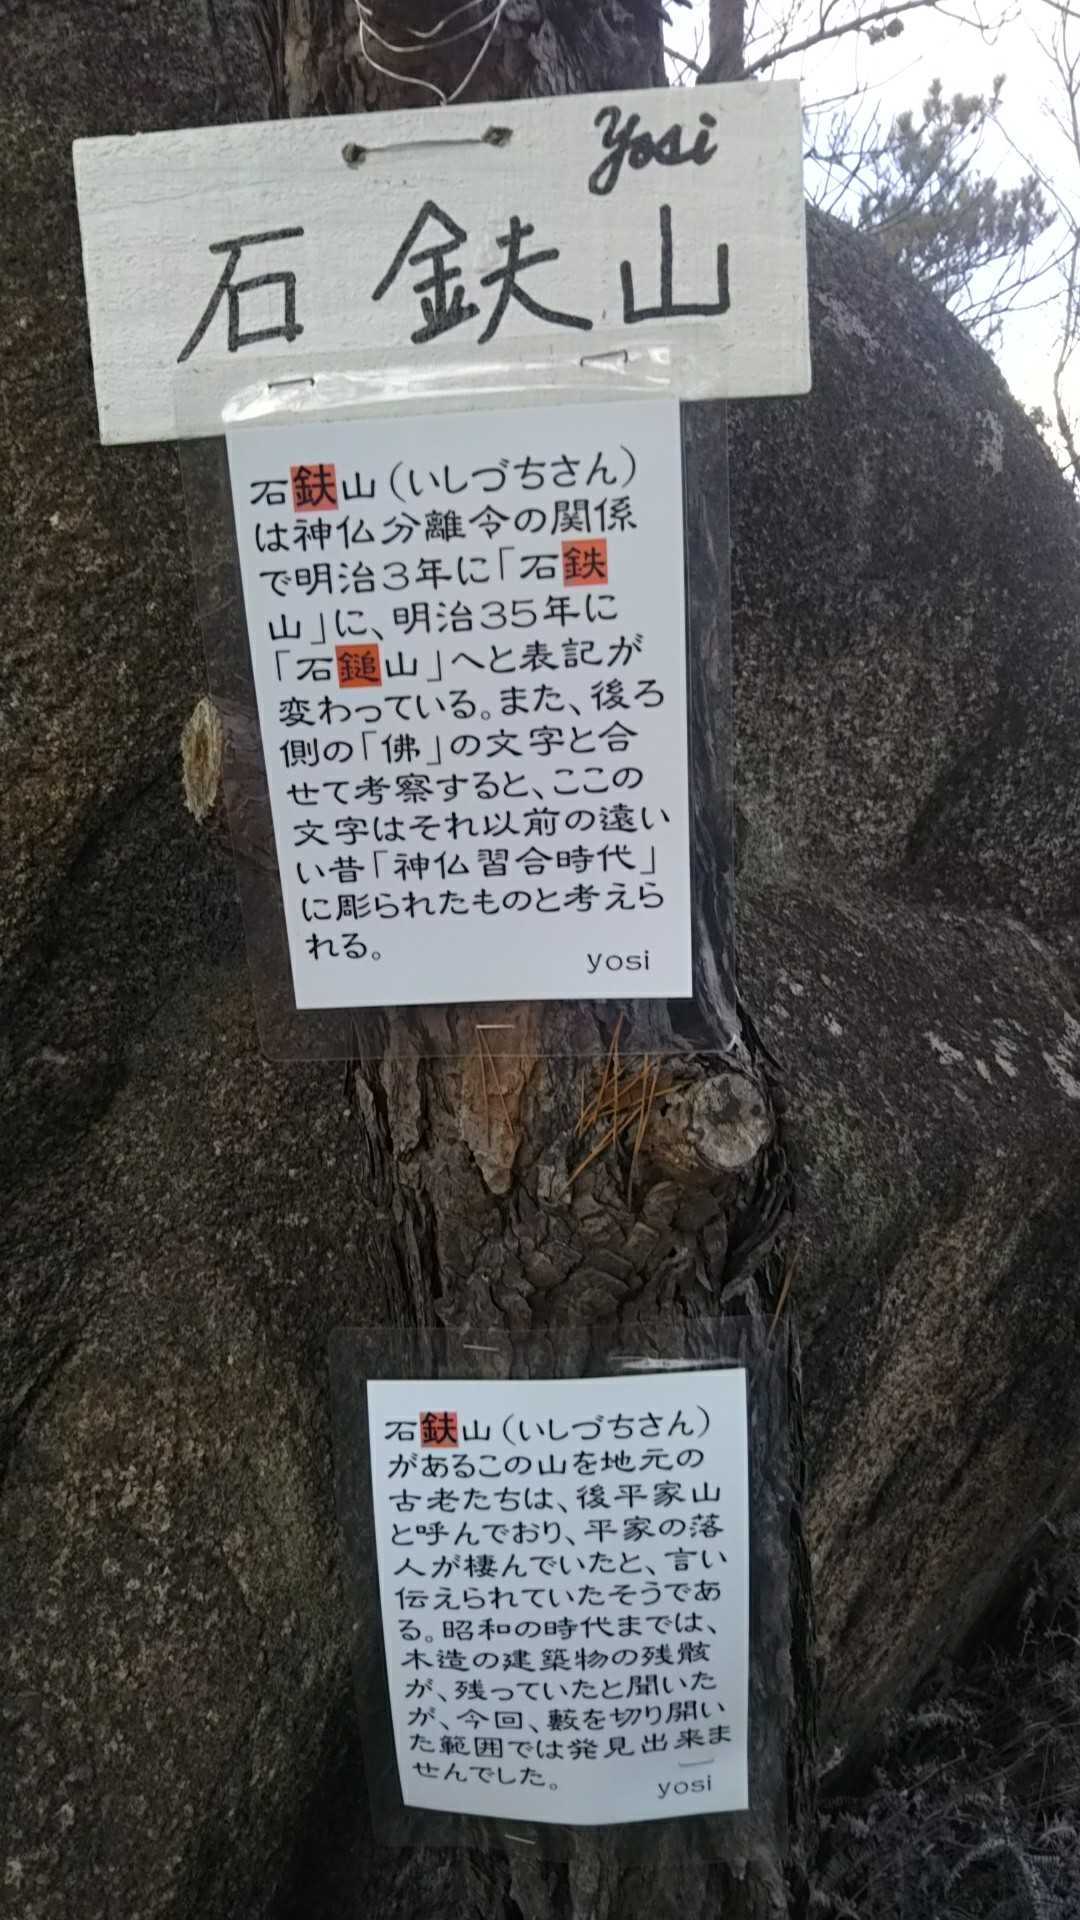 yosi
石鈇山
石鈇山(いしづちさん)
は神仏分離令の関係
で明治3年に「石鉄
山」に、明治35年に
「石鎚山」へと表記が
変わっている。また、後ろ
側の「佛」の文字と合
せて考察すると、ここの
文字はそれ以前の遠い
い昔「神仏習合時代」
に彫られたものと考えら
れる。
yosi
石鈇山(いしづちさん)
があるこの山を地元の
古老たちは、後平家山
と呼んでおり、平家の落
人が棲んでいたと、言い
伝えられていたそうであ
る。昭和の時代までは、
木造の建築物の残骸
が、残っていたと聞いた
が、今回、藪を切り開い
た範囲では発見出来ま
せんでした。
yosi